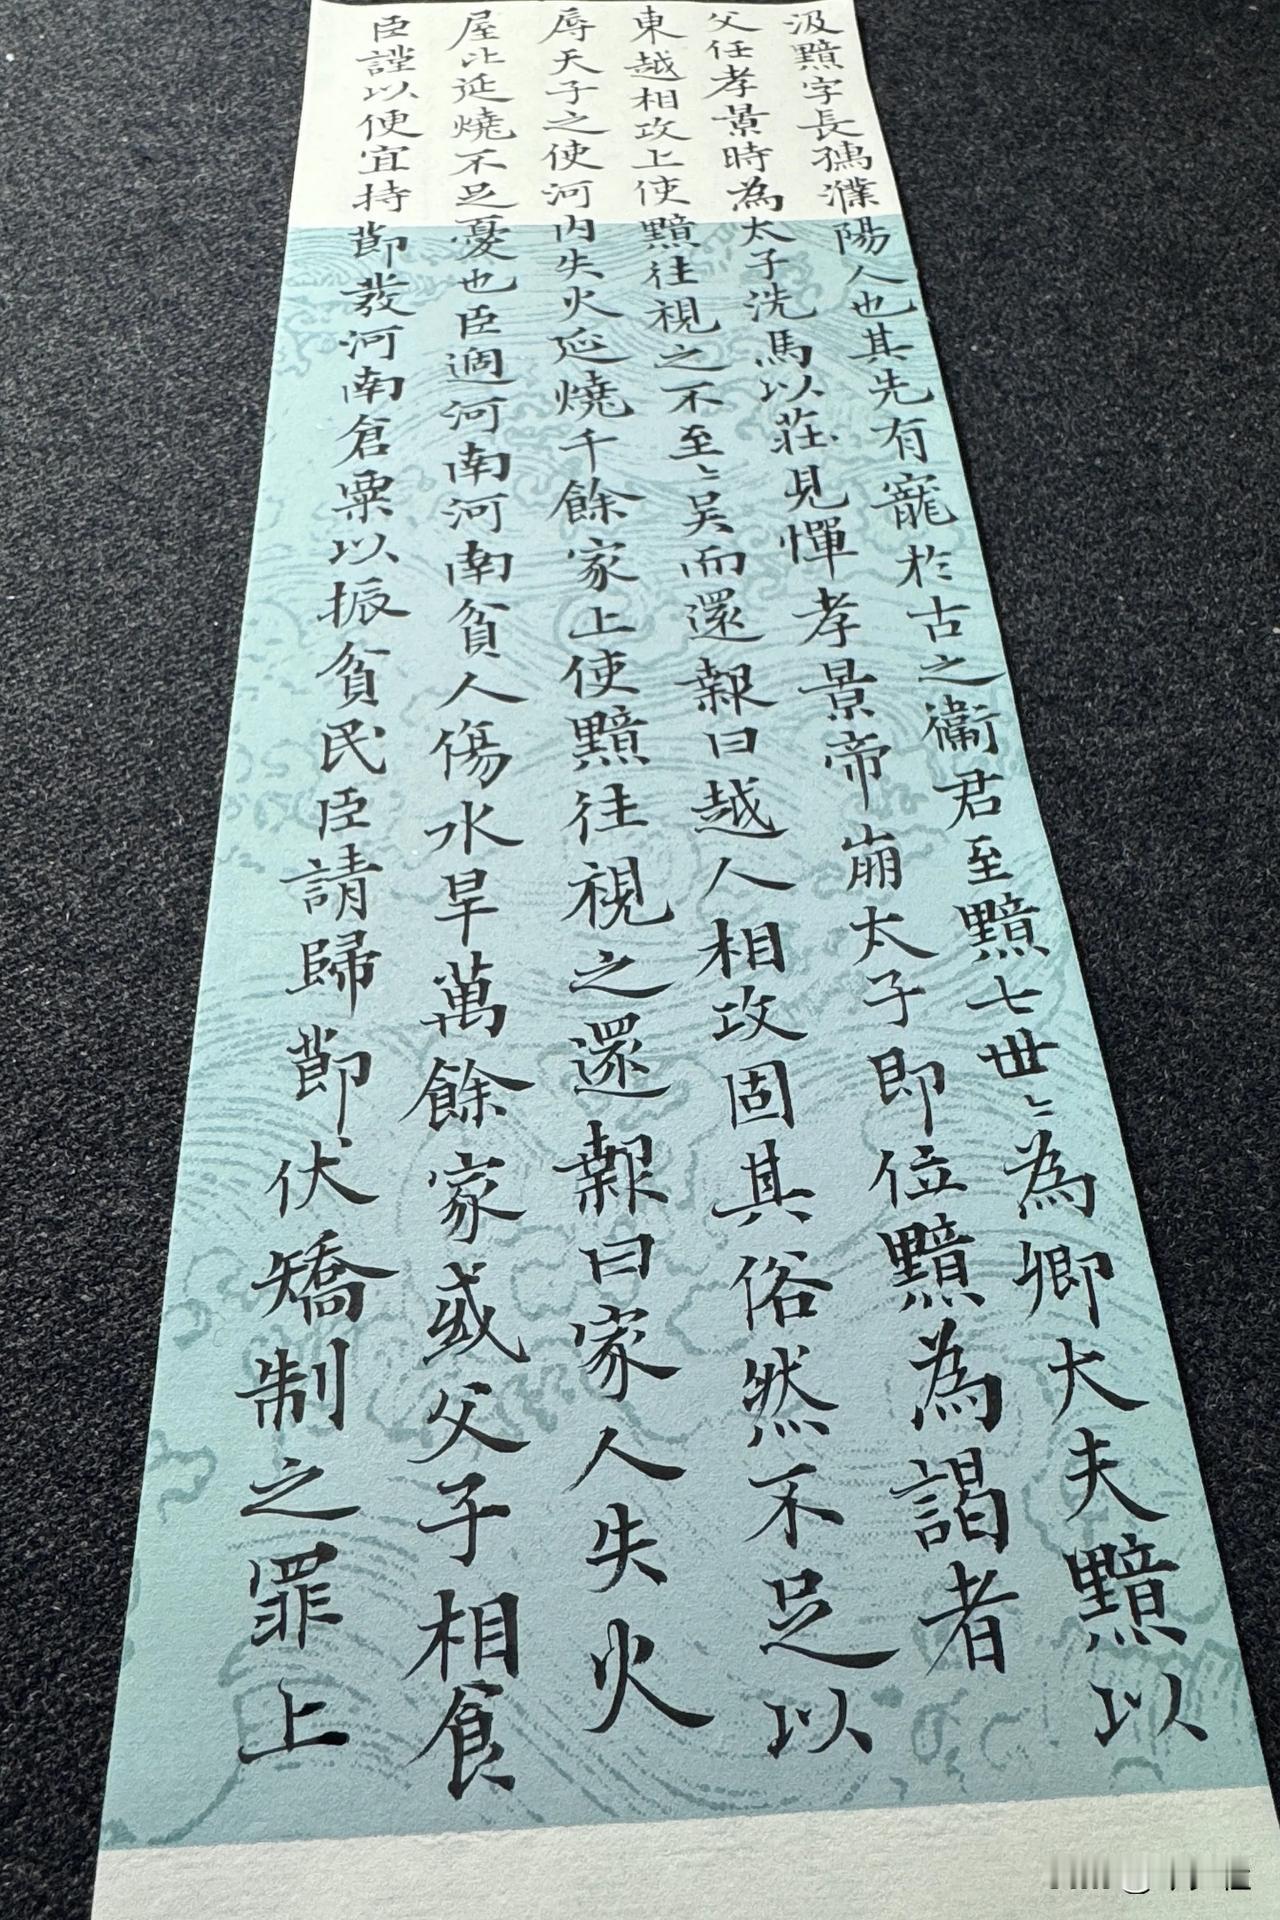 汲黯字長孺濮陽人也其先有寵於古之衛君至黯七世〻為卿大夫黯以
父任孝景時為太子洗馬以莊見憚孝景帝崩太子即位黯為謁者
東越相攻上使黯往視之不至〻吳而還報曰越人相攻固其俗然不足以
辱天子之使河內失火延燒千餘家上使黯往視之還報曰家人失火
屋比延燒不足憂也臣過河南河南貧人傷水旱萬餘家或父子相食
臣謹以便宜持節發河南倉粟以振貧民臣請歸節伏矯制之罪上